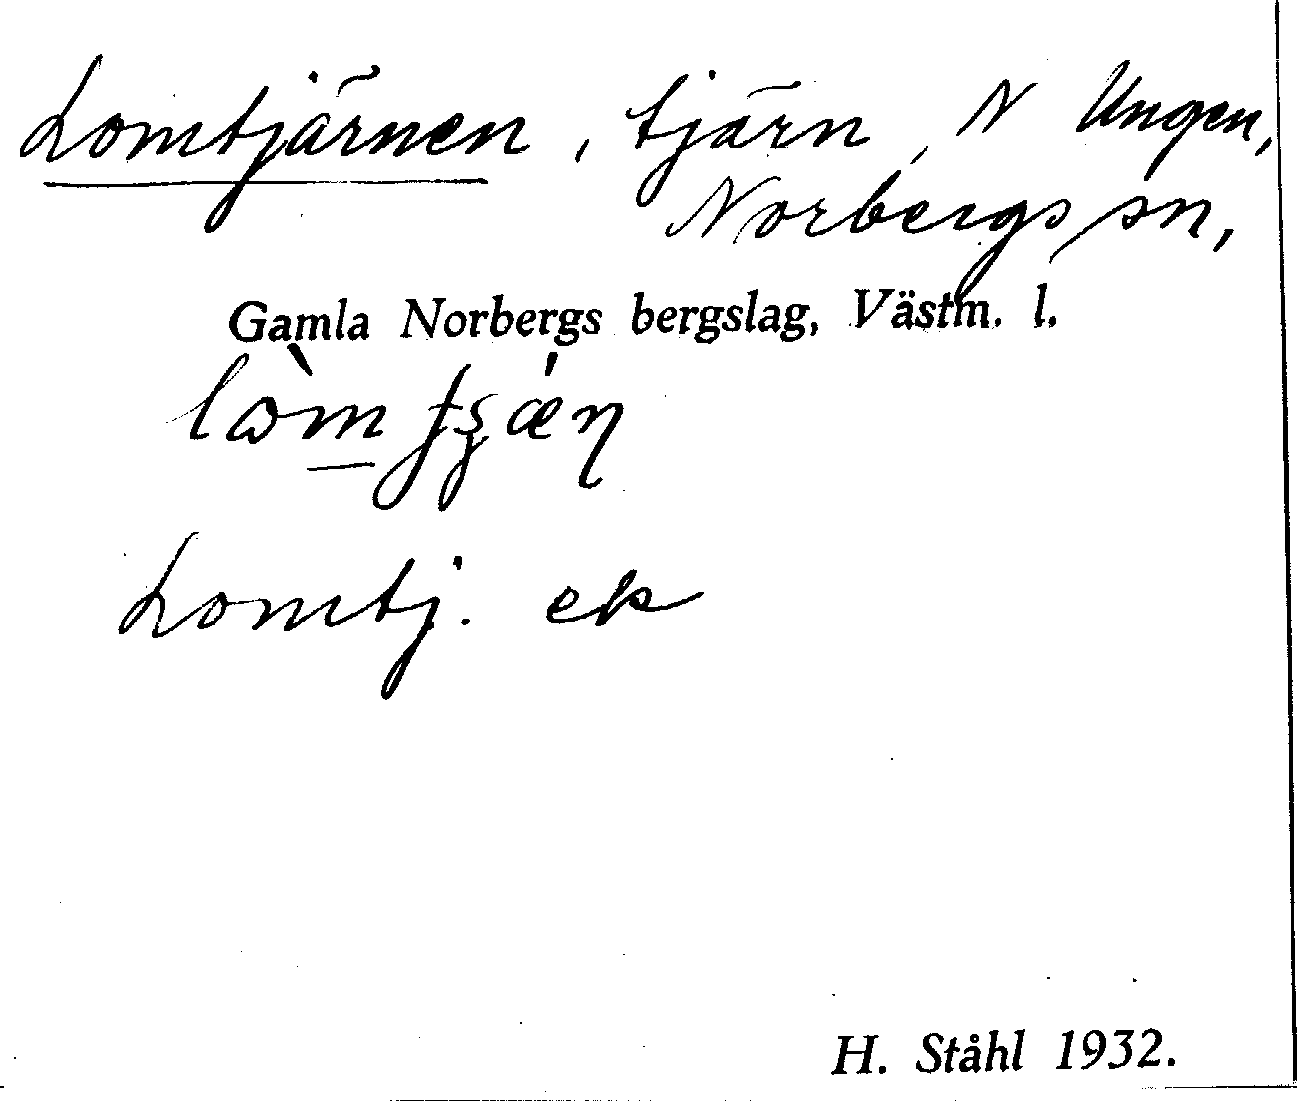 Lomtjärnen, tjärn, N Ungen,
Norbergs sn,
Gamla Norbergs bergslag, Västm. l.
Lomtj. ek
H. Ståhl 1932.